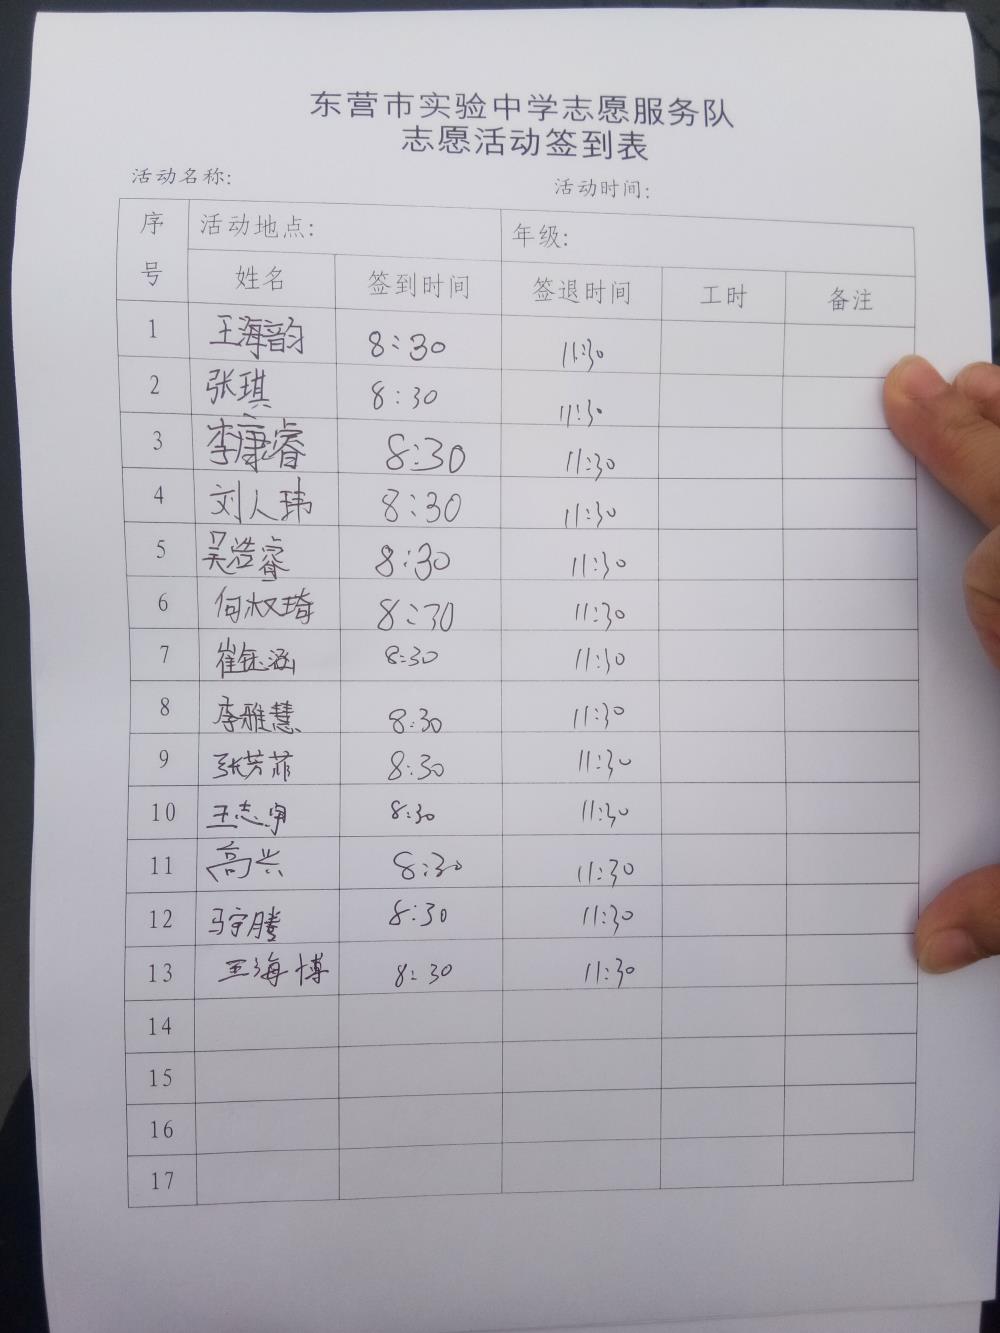 东营市实验中学志愿服务队
志愿活动签到表
活动名称: 活动时间:
序号 活动地点: 年级:
姓名 签到时间 签退时间 工时 备注
1 王海韵 8:30 11:30
2 张琪 8:30 11:30
3 李康睿 8:30 11:30
4 刘人玮 8:30 11:30
5 吴浩睿 8:30 11:30
6 何淑琦 8:30 11:30
7 崔钰涵 8:30 11:30
8 李雅慧 8:30 11:30
9 张芳菲 8:30 11:30
10 王志宇 8:30 11:30
11 高兴 8:30 11:30
12 马宇腾 8:30 11:30
13 王海博 8:30 11:30
14
15
16
17